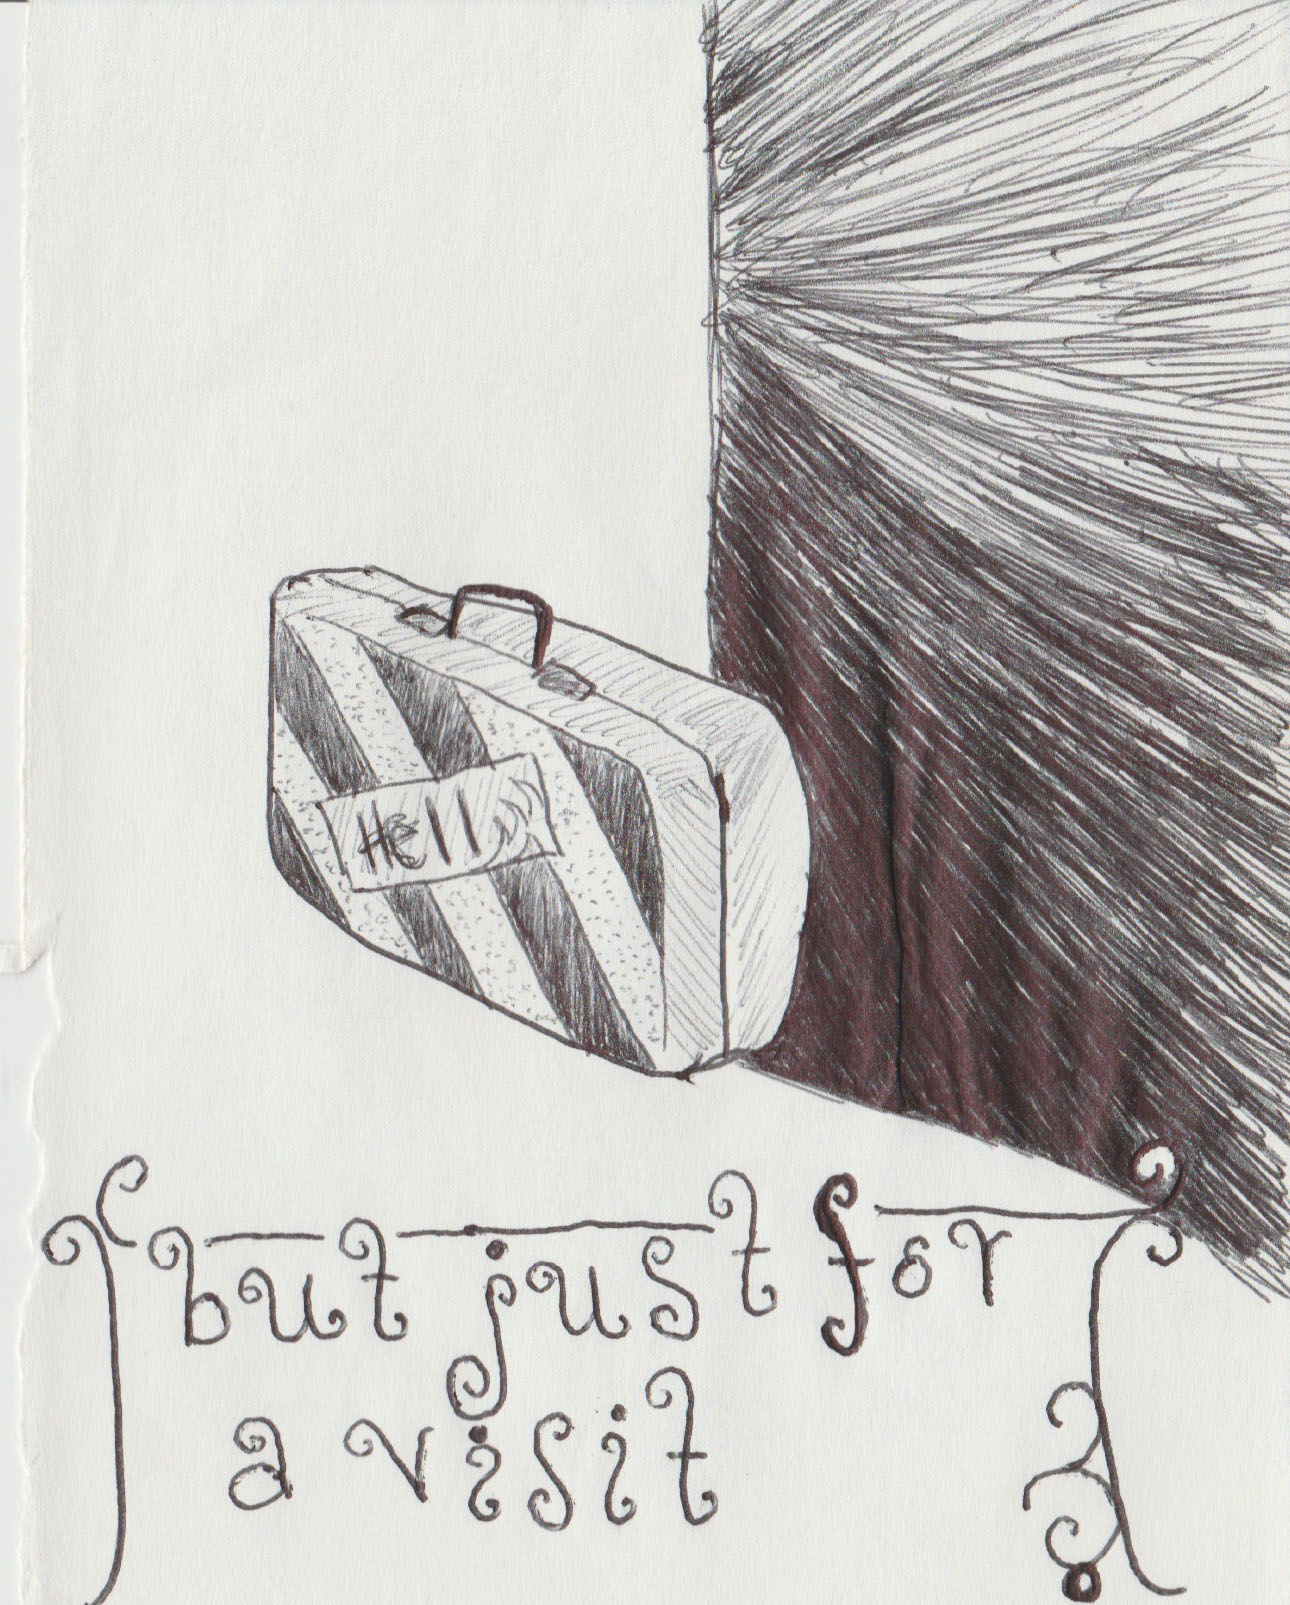 Hell
but just for
a visit